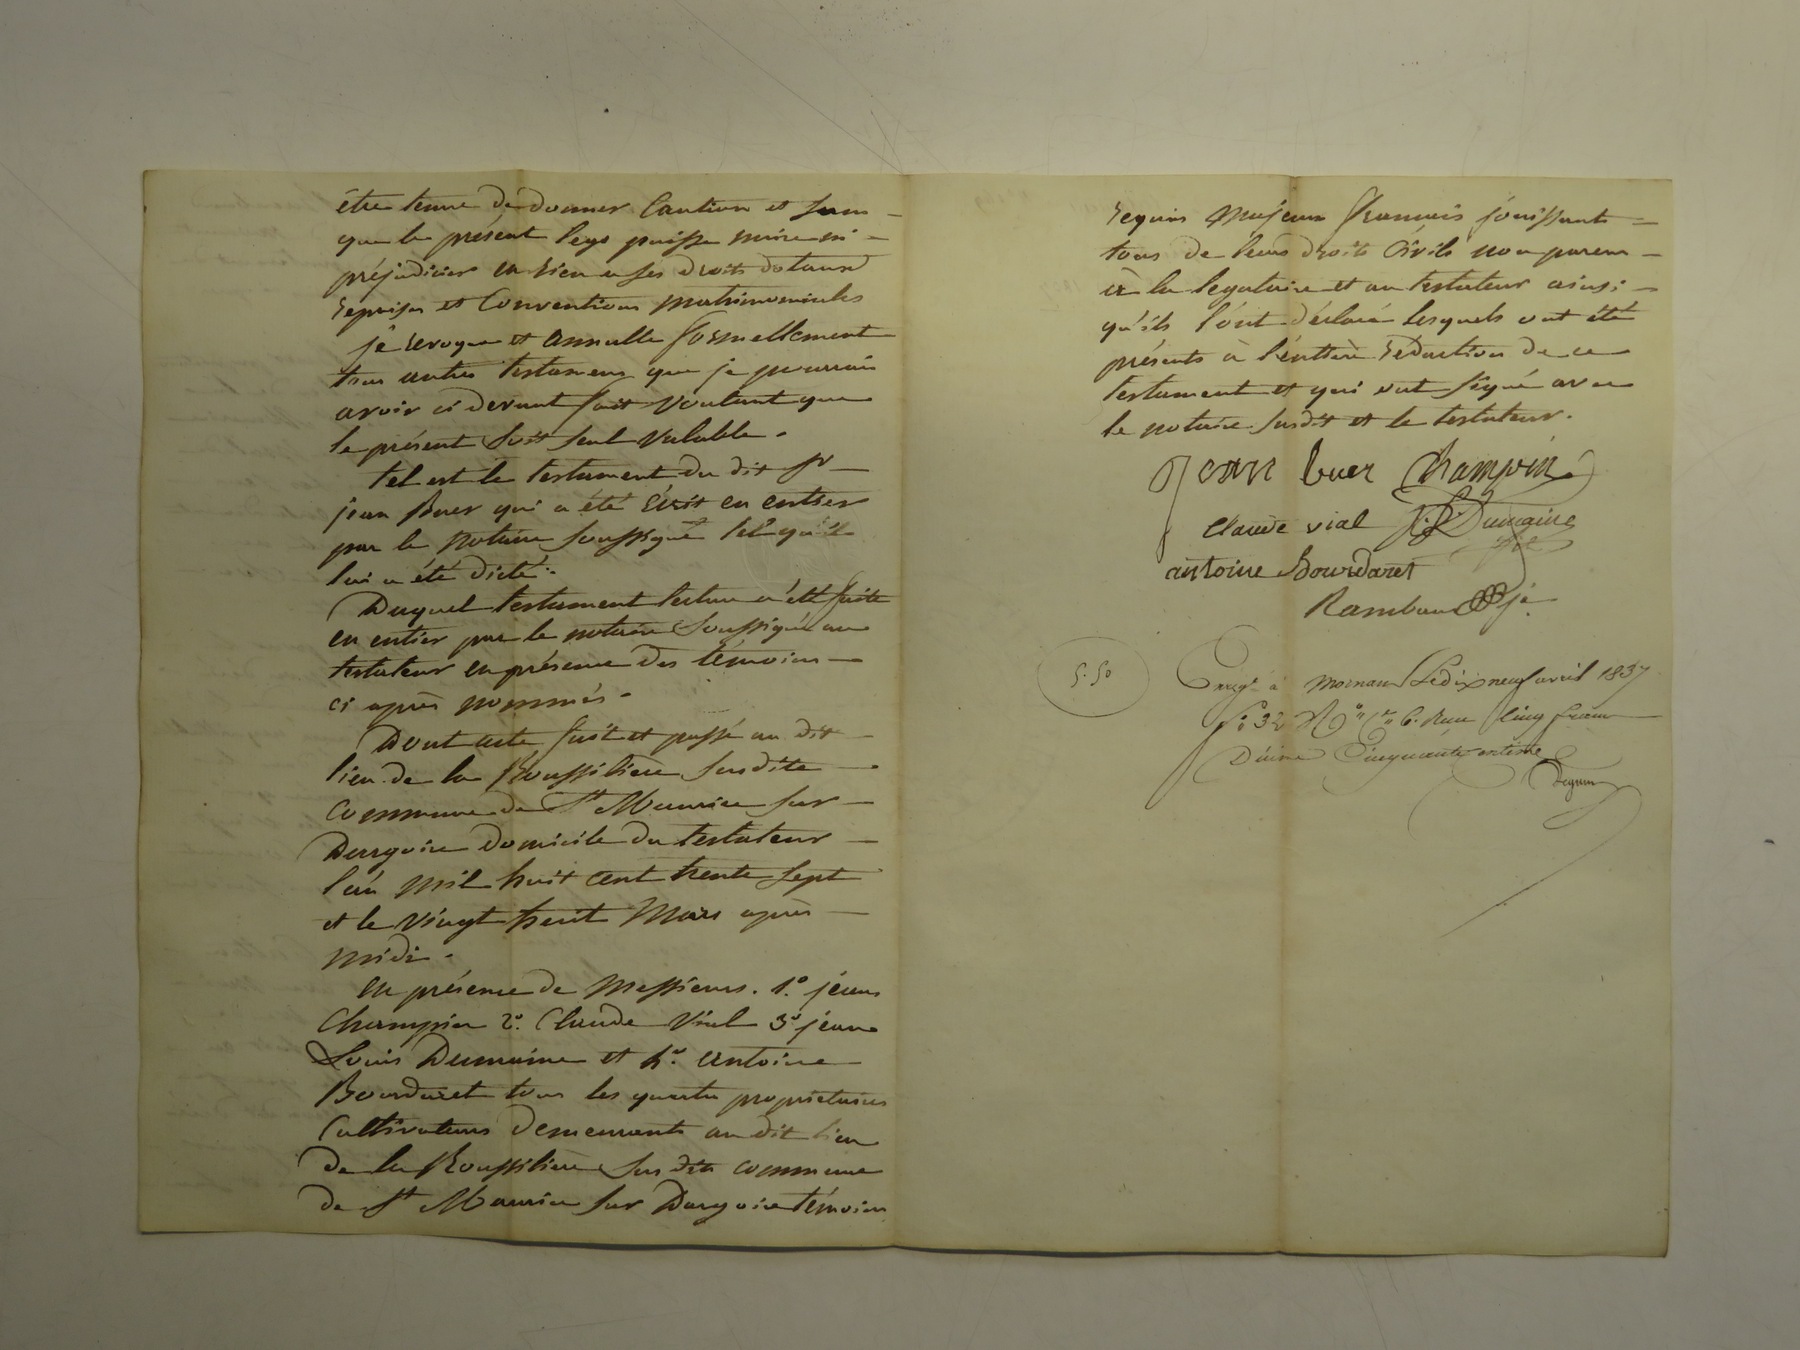 être tenue de donner Caution et sans
que le présent legs puisse nuire ni
préjudicier en rien a ses droits dotaux
reprises et Conventions matrimoniales
je revoque et annulle formellement
tous autres testamens que je pourrais
avoir ci devant fait voulant que
le présent soit seul valable.
tel est le testament du dit sr
jean Buer qui a été écrit en entier
par le notaire soussigné tel qu'il
lui a été dicté.
Duquel testament lecture a été faite
en entier par le notaire soussigné au
testateur en présence des témoins
ci après nommés.
Dont acte fait et passé au dit
lieu de la Roussilière susdite
commune de St Maurice sur
Dargoire domicile du testateur
l'an mil huit cent trente sept
et le vingt huit Mars après
midi.
en présence de Messieurs. 1º. jean
Champin 2º. Claude Vial 3º jean
Louis Dumaine et 4º. antoine
Bourdaret tous les quatre proprietaires
Cultivateurs demeurants au dit lieu
de la Roussilière sus dite commune
de St Maurice sur Dargoire témoins
requis Majeurs français jouissant
tous de leurs droits Civils non parens
à la legataire et au testateur ainsi
qu'ils l'ont déclaré lesquels ont été
présents à l'entière rédaction de ce
testament et qui ont signé avec
le notaire susdit et le testateur.
jean buer Champin
Claude vial J. L. Dumaine
antoine Bourdaret
Rambaud
5.50
Enregé à Mornant Le dix neuf avril 1837
fº 32 Rº Cs 6. Reçu Cinq francs
Décime Cinquante centime